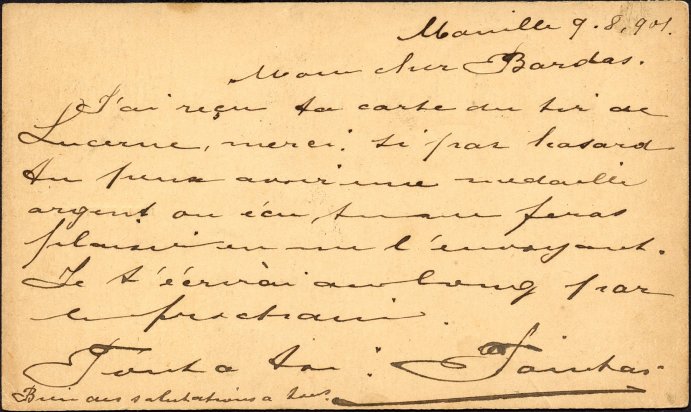 Manille 9.8.901.
Mon cher Bardas.
J'ai reçu ta carte du tir de
Lucerne, merci. si par hasard
tu peux avoir une medaille
argent ou écu tu me feras
plaisir en me l'envoyant.
Je t'écrirai au long par
le prochain
Tout a toi
Bien des salutations a tous.